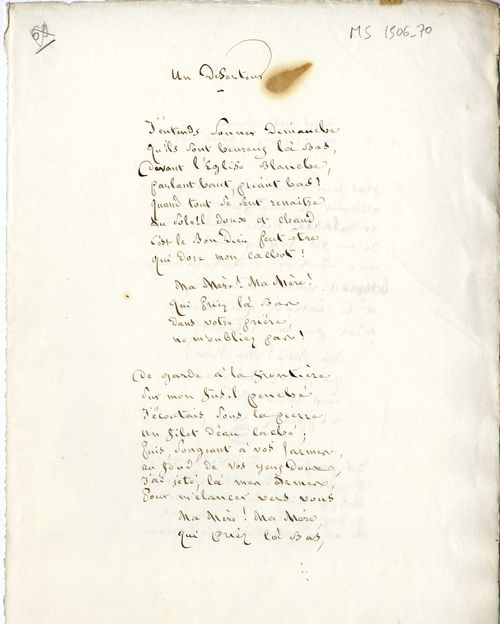 MS 1506-70
Un Déserteur
J'entends sonner Dimanche
Qu'ils sont heureux là Bas,
Devant l'Eglise Blanche,
parlant haut, priant bas !
quand tout se sent renaitre
Au Soleil doux et chaud
C'est le Bon Dieu peut-être
qui dore mon cachot !
Ma Mère ! Ma Mère !
qui priez là Bas
Dans votre prière,
ne m'oubliez pas !
De garde à la frontière
Sur mon fusil penché
J'écoutais sous la pierre
un filet d'eau caché ;
puis, songeant à vos larmes,
au fond de vos yeux Doux,
J'ai jeté, là mes Armes
Pour m'élancer vers vous.
Ma Mère ! Ma Mère
qui priez là Bas,